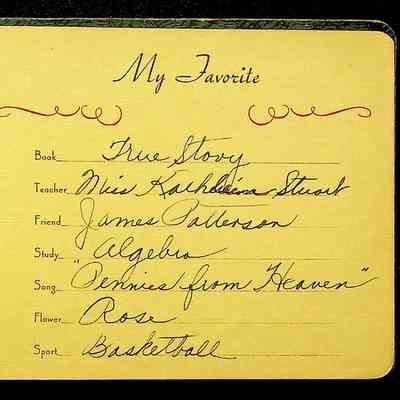 My Favorite
Book True Story
Teacher Miss Kathleen Stuart
Friend James Patterson
Study Algebra
Song "Pennies from Heaven"
Flower Rose
Sport Basketball